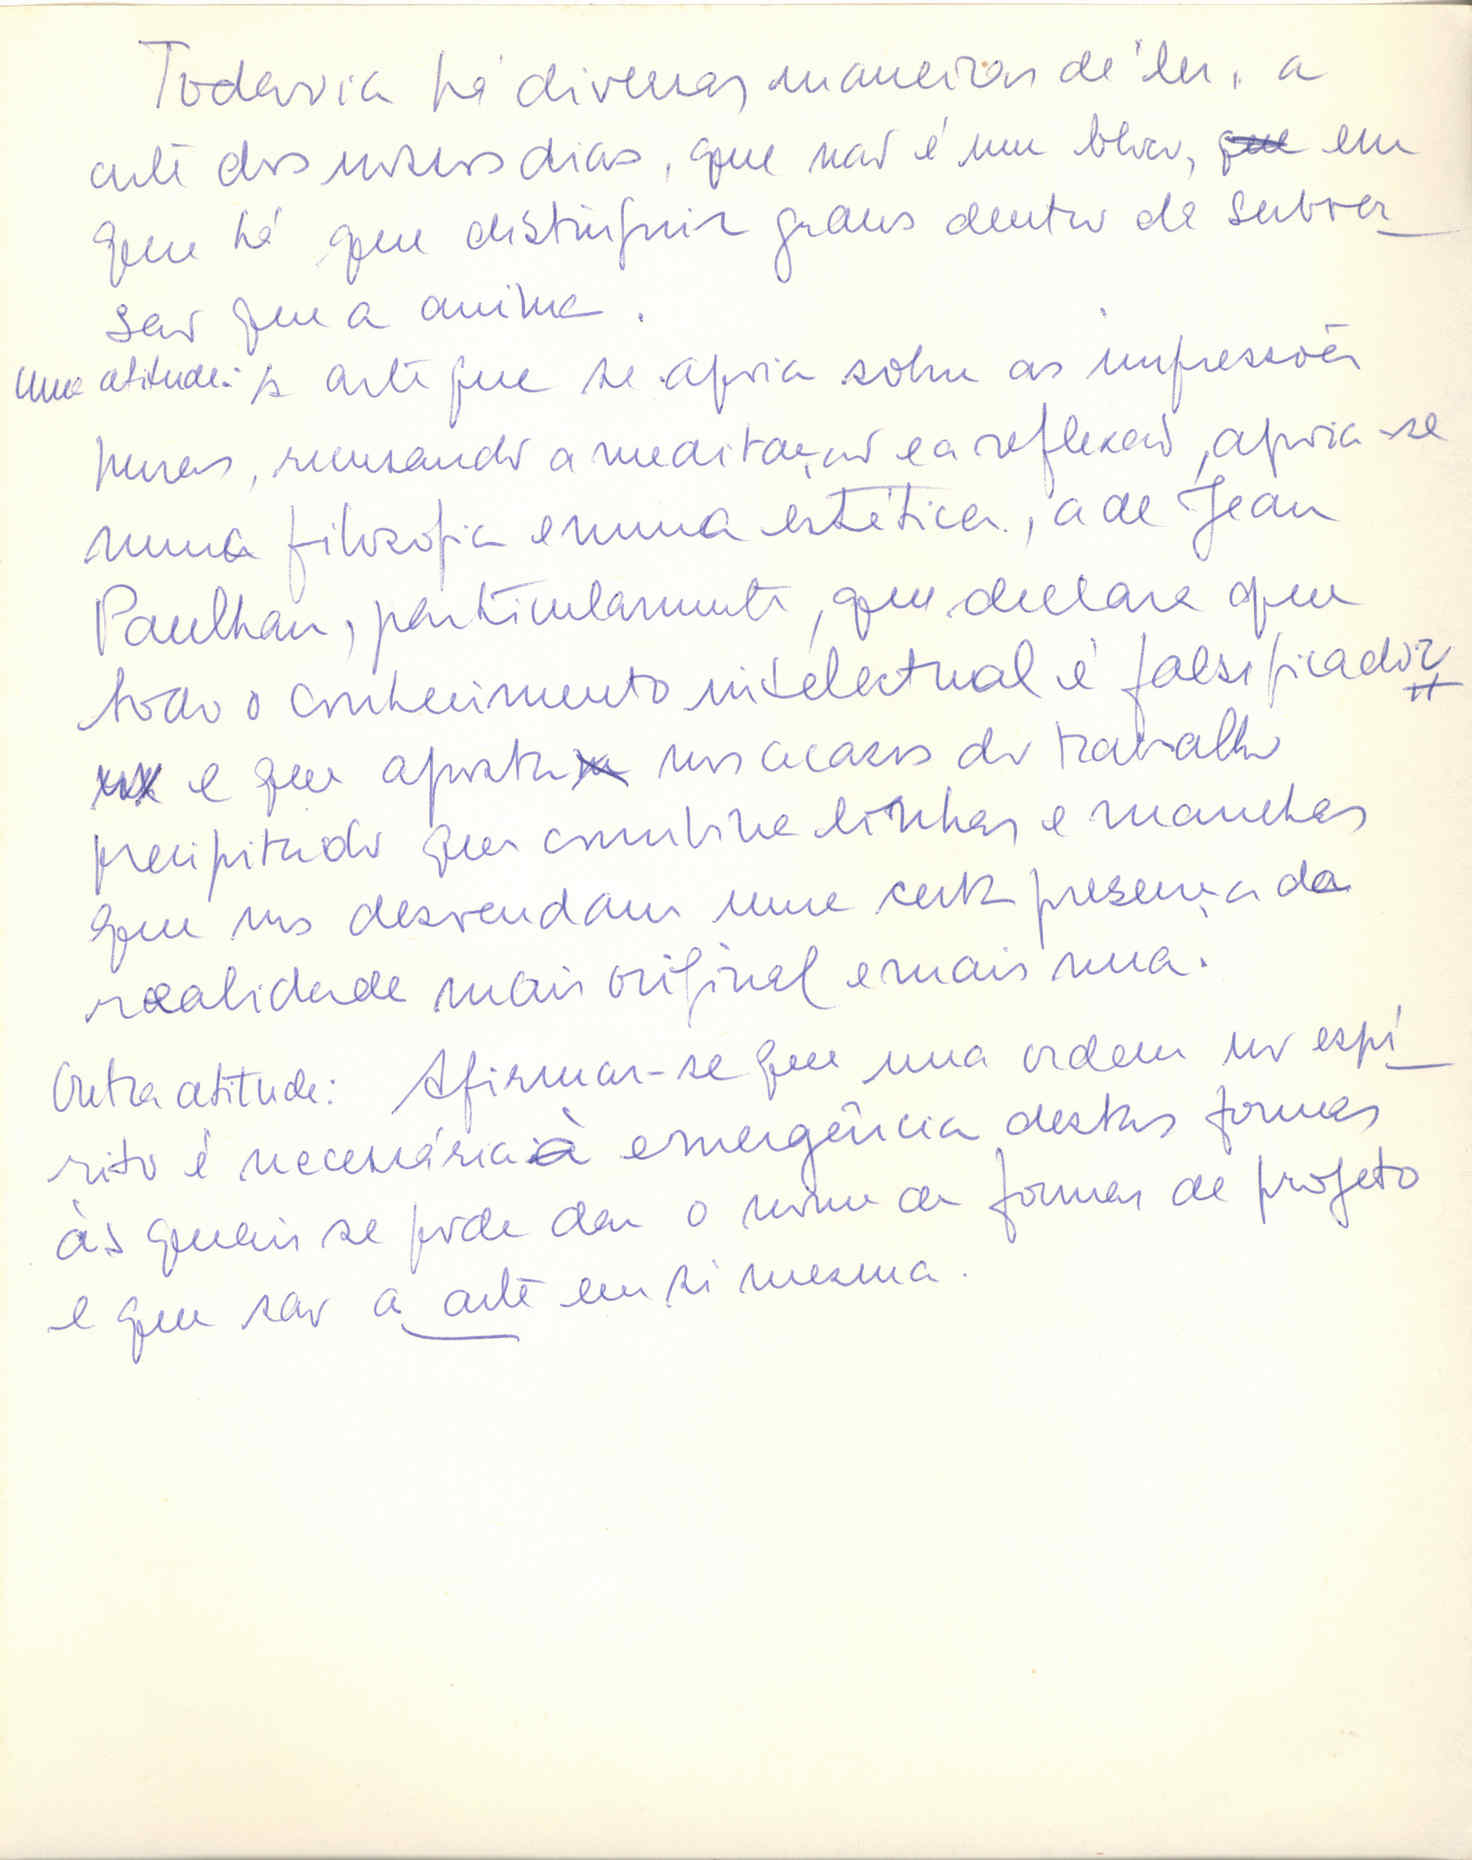 Todavia há diversas maneiras de "ler" a
arte dos nossos dias, que não é um bloco, que em
que há que distinguir graus dentro da subver_
são que a anima.
Uma atitude: a arte que se apoia sobre as impressões
puras, recusando a meditação e a reflexão, apoia-se
numa filosofia e numa estética, a de Jean
Paulhan, particularmente, que declara que
todo o conhecimento intelectual é falsificador
e que aposta nos acasos do trabalho
precipitado que combina linhas e manchas
que nos desvendam uma certa presença da
realidade mais original e mais nua.
Outra atitude: Afirmar-se que uma ordem no espí_
rito é necessária à emergência destas formas
às quais se pode dar o nome de formas de projeto
e que são a arte em si mesma.